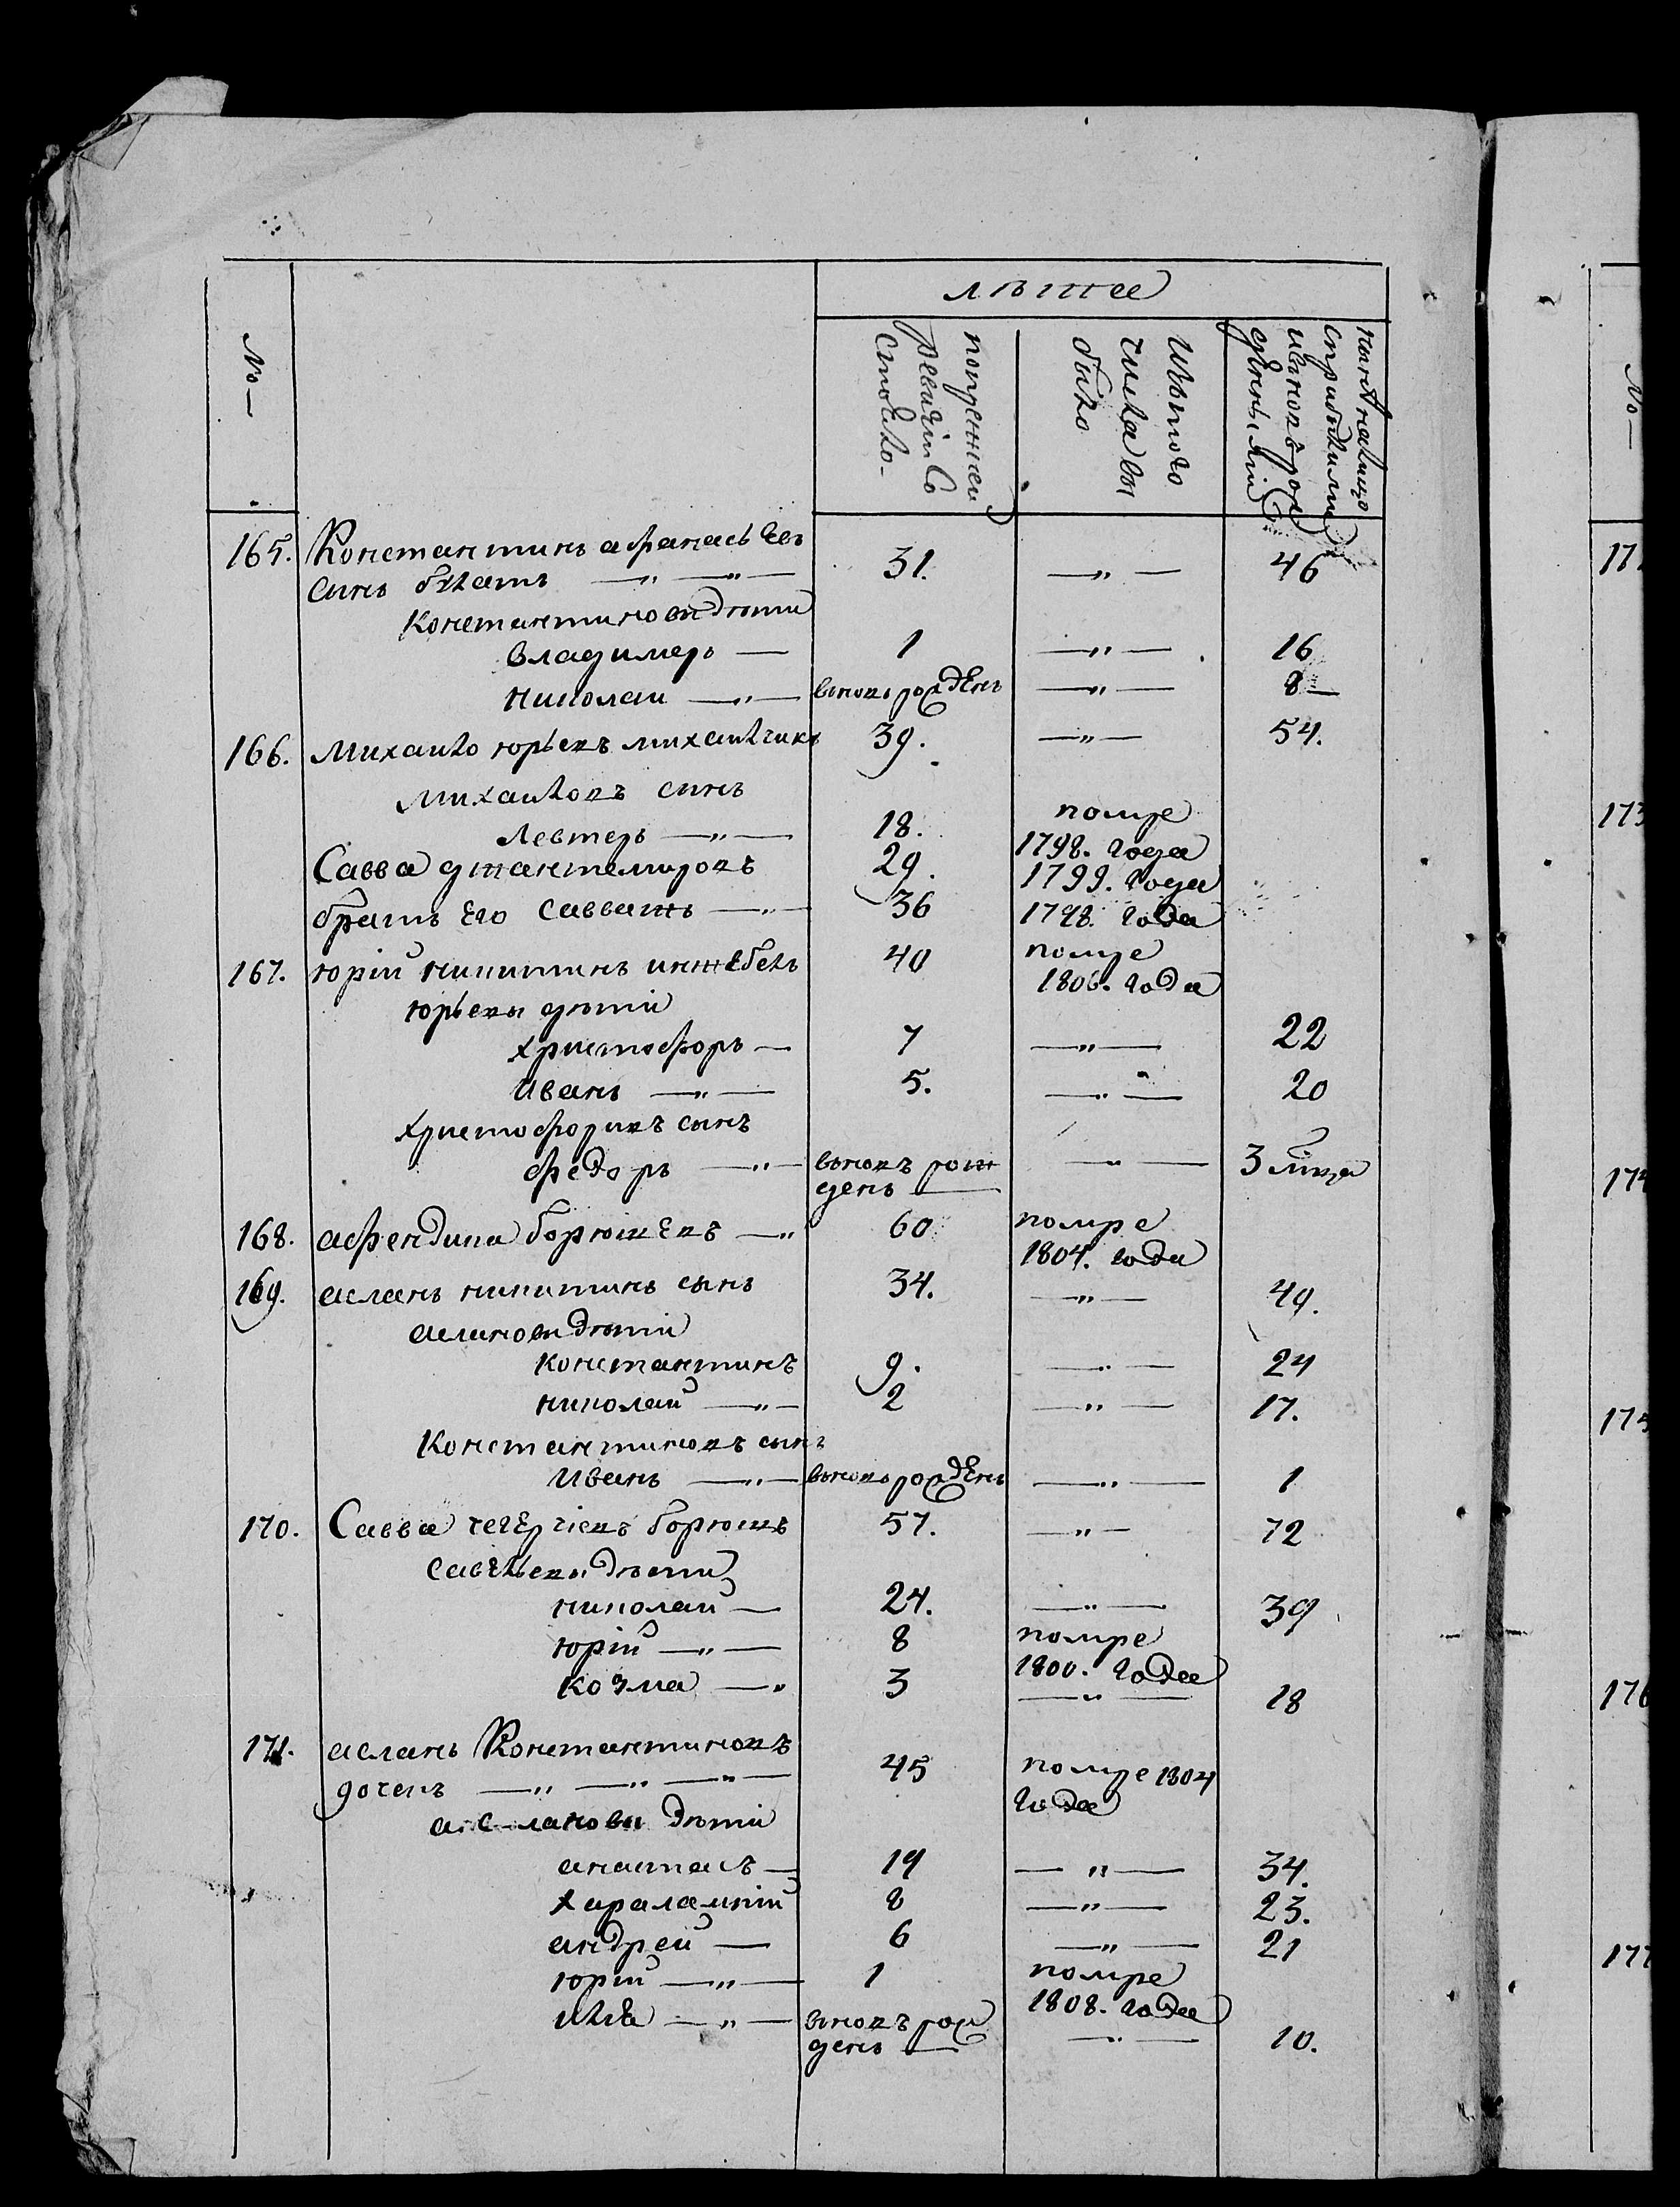 лѣта
№
попрежней ревизiи Состояло
Изътого числа выбыло
Нынѣ налицо
165. Константинъ афанасьевъ 31. —„— 46
сынъ —„ —„—
Константиновы дѣти
владимеръ — 1 —„— 16
николай —„— вновь рожденъ —„— 8
166. михайло юрьевъ михайличикъ 39. —„— 54.
михайловъ сынъ
Левтеръ —„— 18. помре 1798. года
Савва джантемировъ 29. 1799. года
братъ Его Савватъ —„— 36 1798. года
167. юрiй никитинъ инжебелъ 40 помре 1806. года
юрьевы дѣти
христофоръ — 7 —„— 22
иванъ —„— 5. —„— 20
христофоровъ сынъ
федоръ —„— вновь рожденъ —„— 3 мѣсяца
168. афендика борюшевъ —„ 60 помре 1804. года
169. асланъ никитинъ сынъ 34. —„— 49.
аслановы дѣти
константинъ 9. —„— 24
николай —„— 2 —„— 17.
Константиновъ сынъ
Иванъ —„— вновь рожденъ —„— 1
170. Савва борюшъ 57. —„— 72
савельевы дѣти
николай — 24. —„— 39
юрiй —„— 8 помре 1800. года
козма —„ 3 —„— 18
171. асланъ Константиновъ 45 помре 1804 года
дочевъ —„ —„ —„—
аслановы дѣти
анатасъ — 19 —„— 34.
харалампiй 8 —„— 23.
андрей — 6 —„— 21
юрiй —„— 1 помре 1808. года
илiа —„— вновь рожденъ —„— 10.
№
173
174
175
176
177